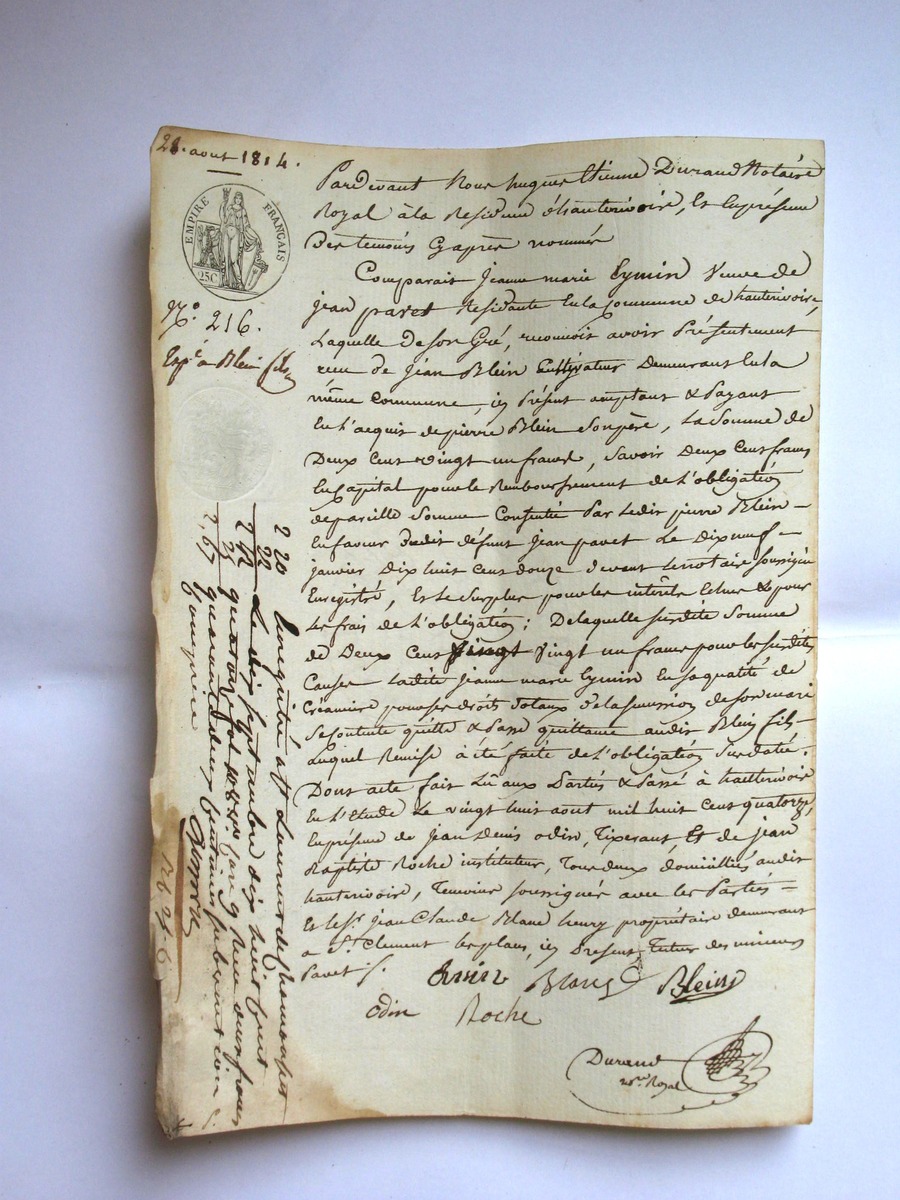 28. aout 1814.
EMPIRE FRANÇAIS
25C
N.o 216.
Exp.é a Blein fils
Pardevant Nous hugues Etienne Durand Notaire
Royal à la Residence d'hauterivoire, Et En présence
Des temoins Cy après nommés
Comparait Jeanne marie Eymin Veuve de
jean pavet Residante En la Commune de hauterivoire,
Laquelle de son Gré, reconnoit avoir Présentement
recu de Jean Blein Cultivateur Demeurant En la
même Commune, icy Présent comptant & Payant
En l'acquit de pierre Blein Son père, La Somme de
Deux Cent Vingt un francs, Savoir Deux Cent francs
En Capital pour le Remboursement de L'obligation
de pareille Somme Consentie Par Ledit pierre Blein
En faveur Dudit défunt Jean pavet Le Dix neuf
janvier Dix huit Cent douze devant le notaire soussigné
Enregistré, Et Le Surplus pour les intérêts Echus & pour
Les frais de L'obligation; De laquelle susdite Somme
de Deux Cent Vingt un francs pour les susdites
Causes Ladite Jeanne marie Eymin En sa qualité de
Créancière pour ses droits Dotaux de la succession de son mari
Se contente quitte & Passe quittance audit Blein fils
auquel Remise à été faite de L'obligation Sus datée.
Dont acte fait Lû aux Parties & Passé à hauterivoire
En L'Etude Le vingt huit aout mil huit Cent quatorze,
En présence de Jean Denis odin, Tixerant, Et de jean
Baptiste Roche instituteur, Tous deux domiciliés audit
hauterivoire, Temoins soussignés avec les Parties
Et le Sr. jean Claude Blanc henry propriétaire demeurant
a St. Clement les places, icy Present, Tuteur des mineurs
Pavet.
Eymin Blanc Blein
odin Roche
Durand
not.re Royal
2 20
22
2 42
25
2,67
Enregistré à St Laurent de Chamousset
Le dix septembre dix huit cent
quatorze fol. Reçu deux francs
quarante deux centimes subvention
comprise